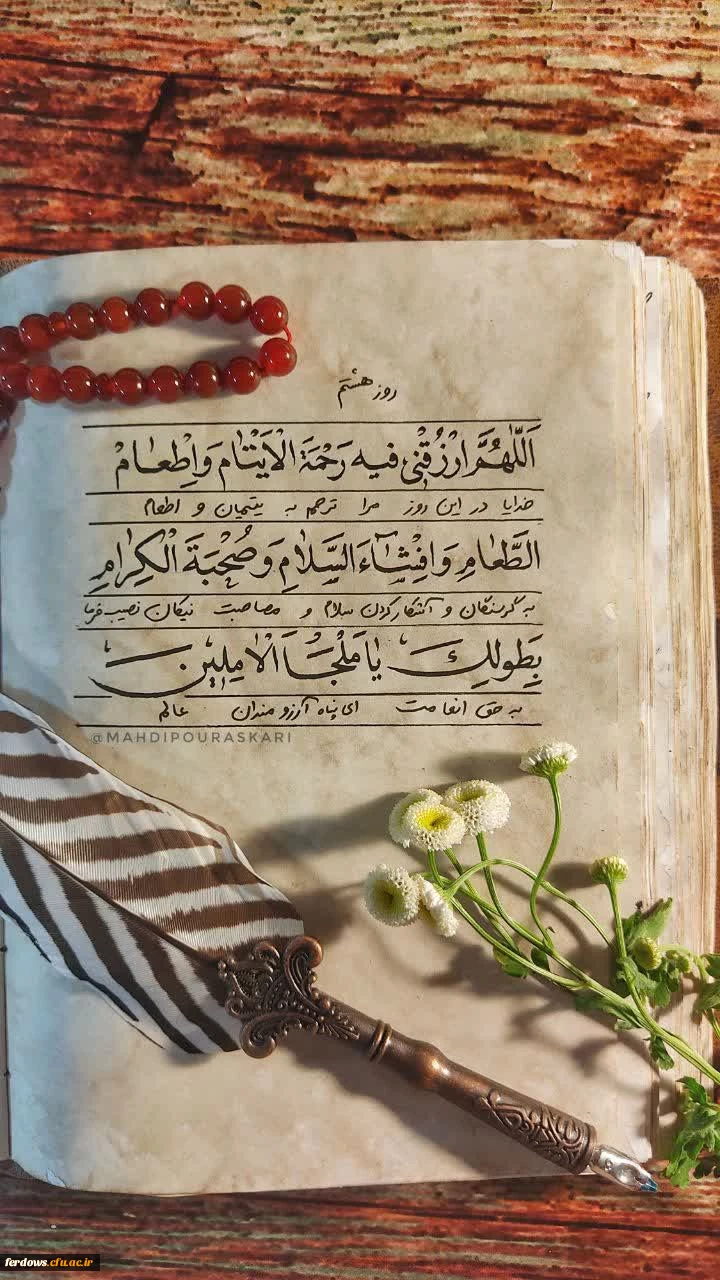 روز هشتم
اَللّٰهُمَّ ارْزُقْنی فیهِ رَحْمَةَ الْاَیْتٰامِ وَ اِطْعٰامْ
خدایا در این روز مرا ترحم به یتیمان و اطعام
الطَّعٰامِ وَ اِفْشٰاءَ السَّلٰامِ وَ صُحْبَةَ الْکِرٰامِ
به گرسنگان و آشکار کردن سلام و مصاحبت نیکان نصیب فرما
بِطَولِکَ یٰا مَلْجَاَ الْاٰمِلینَ
به حق انعامت ای پناه آرزومندان عالم
@MAHDIPOURASKARI
ferdows.cfu.ac.ir